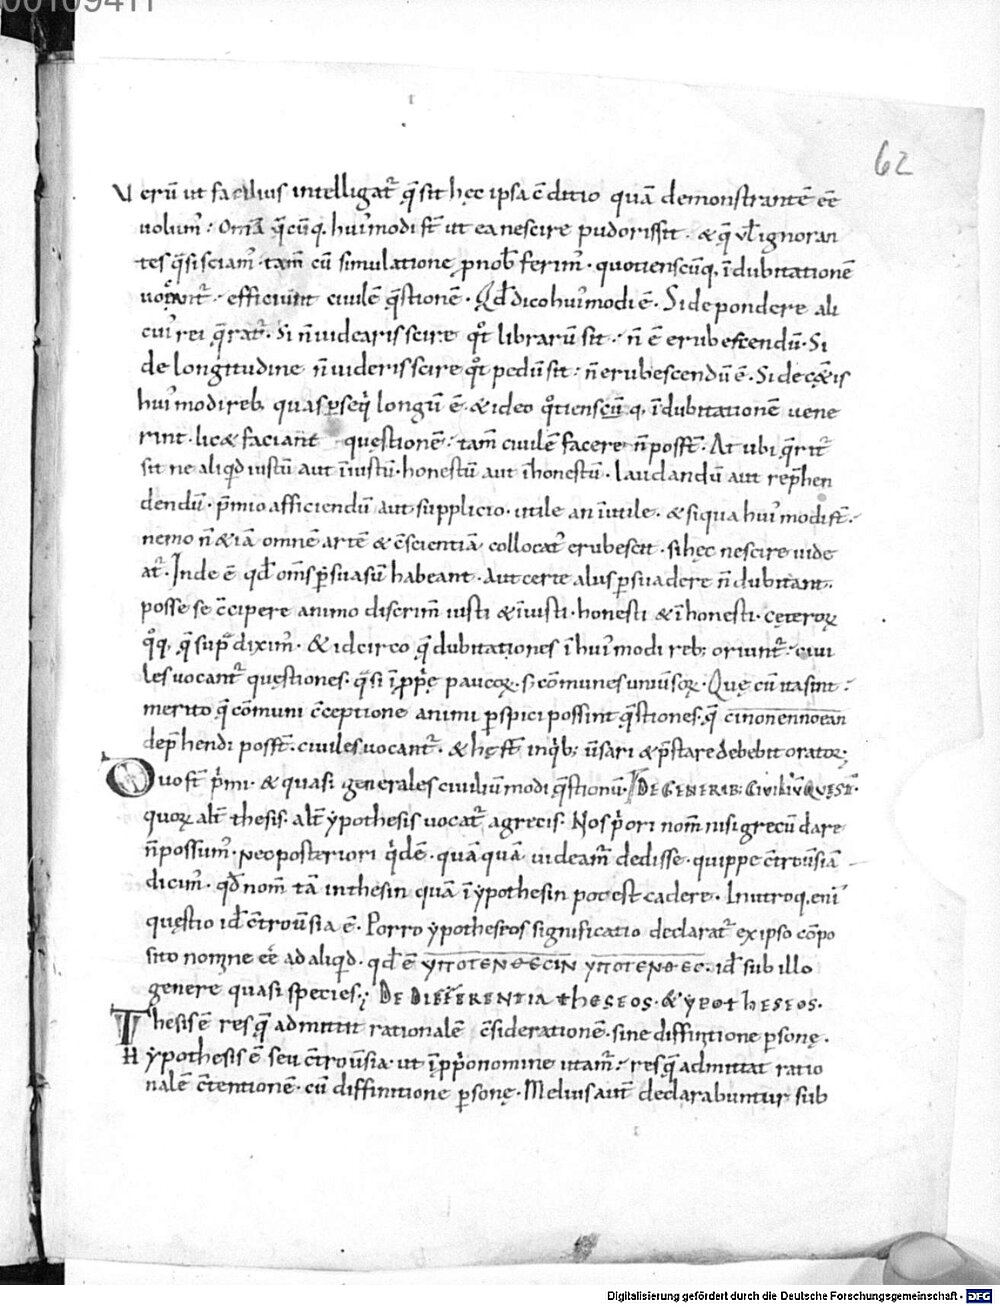 00109411
62
Verū ut facilius intelligat̄ q̄ sit hęc ipsa c̄ditio quā demonstrantē eē
volum᾽: Om̄ia q̄cūq, hui᾽modi s̄t ut ea nescire pudor is sit · & q̄ vł ignoran
tes q̄si sciam᾽ · tam̄ cū simulatione p̄nob̄ ferim᾽ · quotienscūq, ī dubitationē
efficiunt civilē q̄stionē · Qđ dico hui᾽modi ē · Si de pondere ali
cui᾽ rei q̄rat̄ · Si n̄ videaris scire qͦt librarū sit · n̄ ē erubescendū · Si
de longitudine n̄ videris scire qͦt pedū sit : n̄ erubescendū ē · Si de cęt̄is
hui᾽modi reb, quas p̄seq̄ longū ē · & ideo qͦtienscūq, ī dubitationē vene
rint · lic& faciant quęstionē : tam̄ civilē facere n̄ poss̄t · At ubi q̄rit̄
sit ne aliqd̄ iustū aut īiustū · honestū aut īhonestū · laudandū aut rep̄hen
dendū · p̄mio afficiendū aut supplicio · utile an īutile · & si qua hui᾽modi s̄t ·
nemo n̄ &iā omnē artē & c̄scientiā collocat᾽ erubescit · si hęc nescire vide
at̄ · Inde ē qđ om̄s p̄suasū habeant · Aut certe aliis p̄suadere n̄ dubitant ·
posse se c̄cipere animo discrim̄ iusti & īiusti · honesti & īhonesti · cęteroꝝ
qͦq, q̄ sup̄ dixim᾽ · & idcirco q̄ dubitationes ī hui᾽modi reb; oriunt̄ : civi
les vocant̄ quęstiones · q̄si īpp̄ę paucoꝝ · s; cōmunes univsoꝝ · Quę cū ita sint :
merito q̄ cōmuni c̄ceptione animi p̄spici possint q̄stiones, q̄ cinonennoean
dep̄hendi poss̄t · civiles vocant̄ · & hę s̄t inq̄b; v̄sari & p̄stare debebit orator;
Duo s̄t p̄mi · & quasi generales civiliū modi q̄stionū · DE GENERIB; CIVILIŪ QUĘST̄ ·
quoꝝ alt̄ thesis · alt̄ ypothesis vocat̄ agrecis · Nos p̄ori nom̄ nisi grecū dare
n̄ possum᾽ · neo posteriori q̄dē · quā quā videam̄ dedisse · quippe c̄trov̄siā
dicim᾽ · qđ nom̄ tā in thesin quā ī ypothesin potest cadere · In utroq, enī
quęstio id c̄trov̄sia ē · Porro ypotheseos significatio declarat̄ ex ipso cōpo
sito nomine eē ad aliqd̄ · qđ ē YΠOTENΘECIN YΠOTENΘEC · id sub illo
genere quasi species; DE DIFFERENTIA THESEOS · & YPOTHESEOS ·
Thesis ē res q̄ admittit rationalē c̄siderationē · sine diffinitione p̄sonę ·
Hypothesis ē seu c̄trov̄sia · ut īpp̄o nomine utam̄ : res q̄ admittat ratio
nalē c̄tentionē · cū diffinitione p̄sonę · Melius aut̄ declarabuntur sub
Digitalisierung gefördert durch die Deutsche Forschungsgemeinschaft - DFG